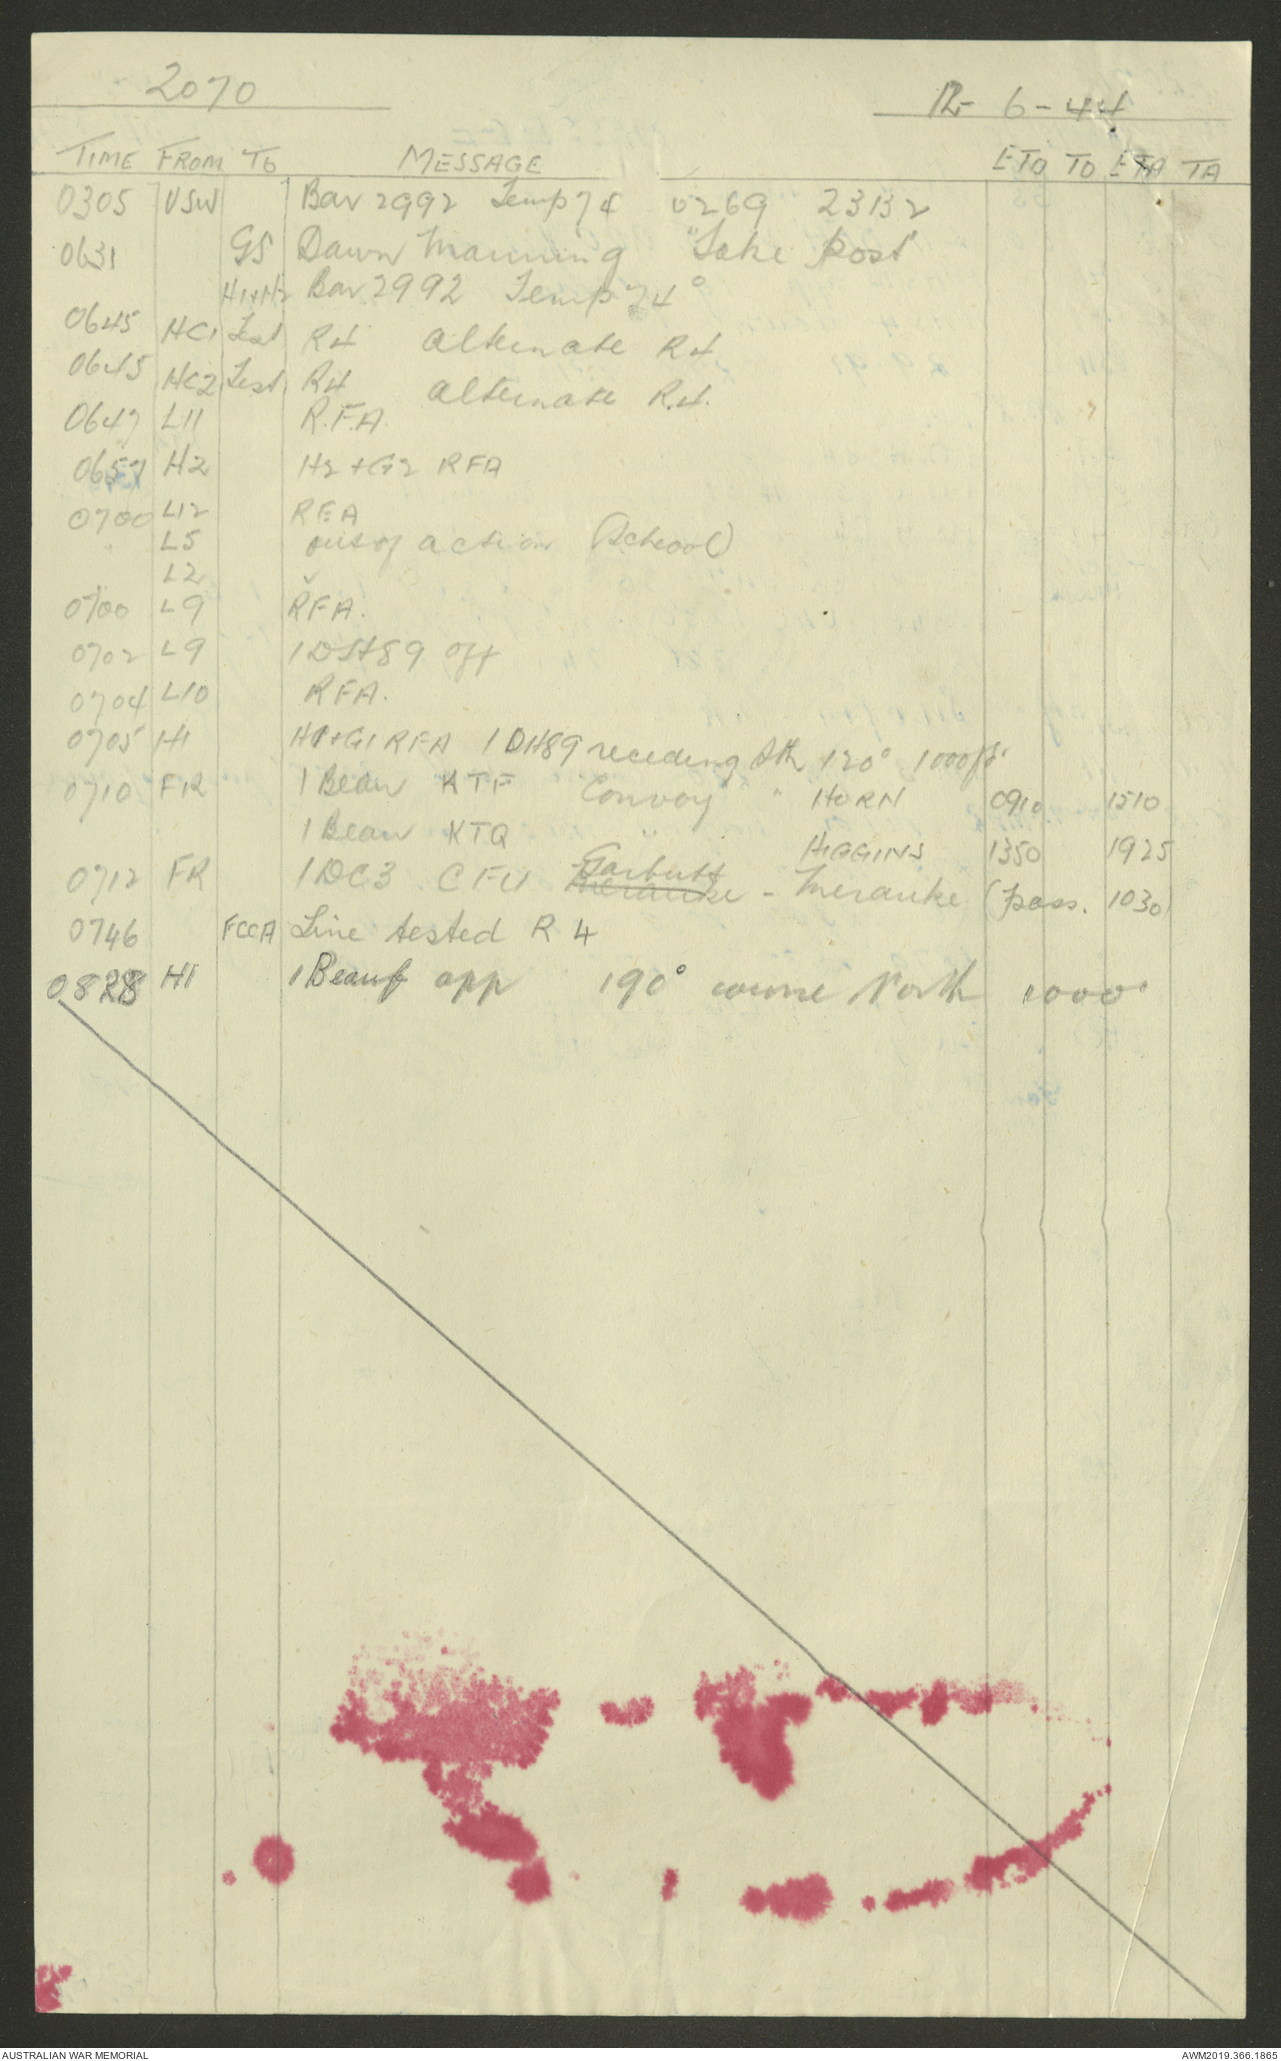 2070
12-6-44
TIME FROM TO MESSAGE ETD TD ETA TA
0305 VSW Bar 2992 Temp 74 0269 23132
0631 GS Dawn Manning "Take Post"
H1+H2 Bar 2992 Temp 74°
0645 HC1 Test R4 alternate R4
0645 HC2 Test R4 alternate R.4.
0647 L11 R.F.A.
0657 H2 H2+G2 RFA
0700 L12 RFA
L5 out of action (School)
L2 "
0700 L9 RFA.
0702 L9 1 DH89 off
0704 L10 RFA.
0705 H1 H1+G1 RFA 1 DH89 receding Sth 120° 1000ft.
0710 FR 1 Beau KTF Convoy " HORN 0910 1510
1 Beau KTQ " HIGGINS 1350 1925
0712 FR 1 DC3 CFU Merauke Garbutt - Merauke (pass. 1030)
0746 FCCA Line tested R 4
0828 H1 1 Beauf app 190° course North 1000'
AUSTRALIAN WAR MEMORIAL
AWM2019.366.1865